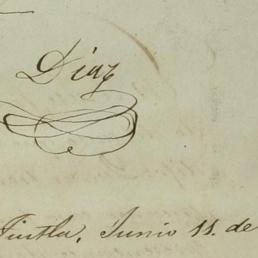 Diaz
Tuxtla, Junio 11. de